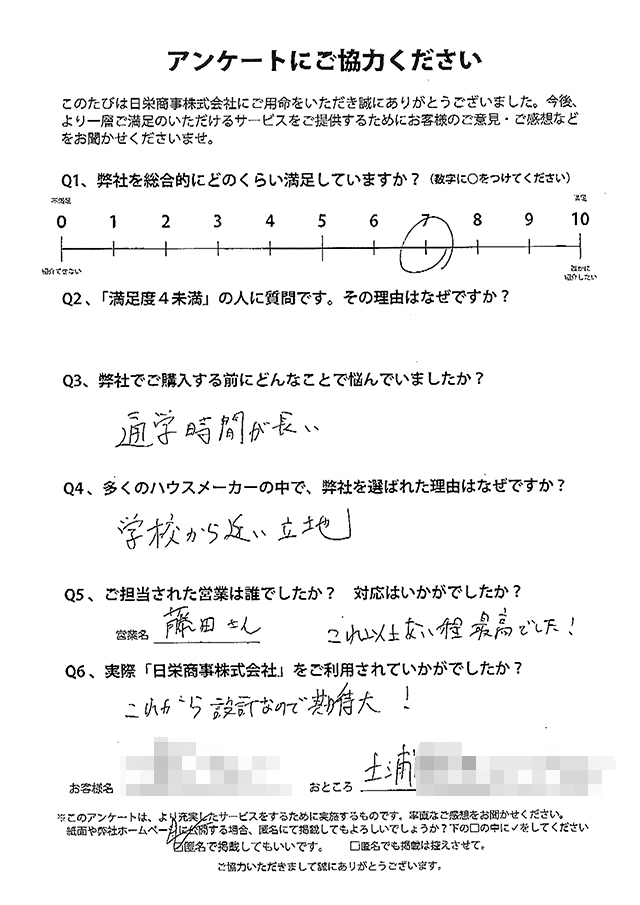 アンケートにご協力ください
このたびは日栄商事株式会社にご用命をいただき誠にありがとうございました。今後、
より一層ご満足のいただけるサービスをご提供するためにお客様のご意見・ご感想など
をお聞かせくださいませ。
Q1、弊社を総合的にどのくらい満足していますか？（数字に○をつけてください）
不満足 満足
0 1 2 3 4 5 6 7 8 9 10
紹介できない 誰かに
紹介したい
Q2、「満足度４未満」の人に質問です。その理由はなぜですか？
Q3、弊社でご購入する前にどんなことで悩んでいましたか？
通学時間が長い
Q4、多くのハウスメーカーの中で、弊社を選ばれた理由はなぜですか？
学校から近い立地
Q5、ご担当された営業は誰でしたか？ 対応はいかがでしたか？
営業名 藤田さん これ以上ない程最高でした！
Q6、実際「日栄商事株式会社」をご利用されていかがでしたか？
これから設計なので期待大！
お客様名 おところ 土浦
※このアンケートは、より充実したサービスをするために実施するものです。率直なご感想をお聞かせください。
紙面や弊社ホームページに公開する場合、匿名にて掲載してもよろしいでしょうか？下の□の中に✓をしてください
☑匿名で掲載してもいいです。 □匿名でも掲載は控えさせて。
ご協力いただきまして誠にありがとうございます。